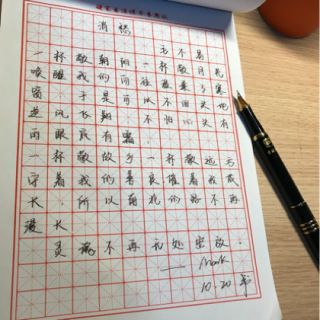 消愁
毛不易
一杯敬朝阳,一杯敬月光
唤醒我的向往,温柔了寒
窗。于是可以不回头地
逆风飞翔,不怕心头有
雨眼底有霜。
一杯敬故乡一杯敬远方
守着我的善良,催着我成
长,所以南北的路不再
漫长
灵魂不再无处安放。
—— Mark
10.20